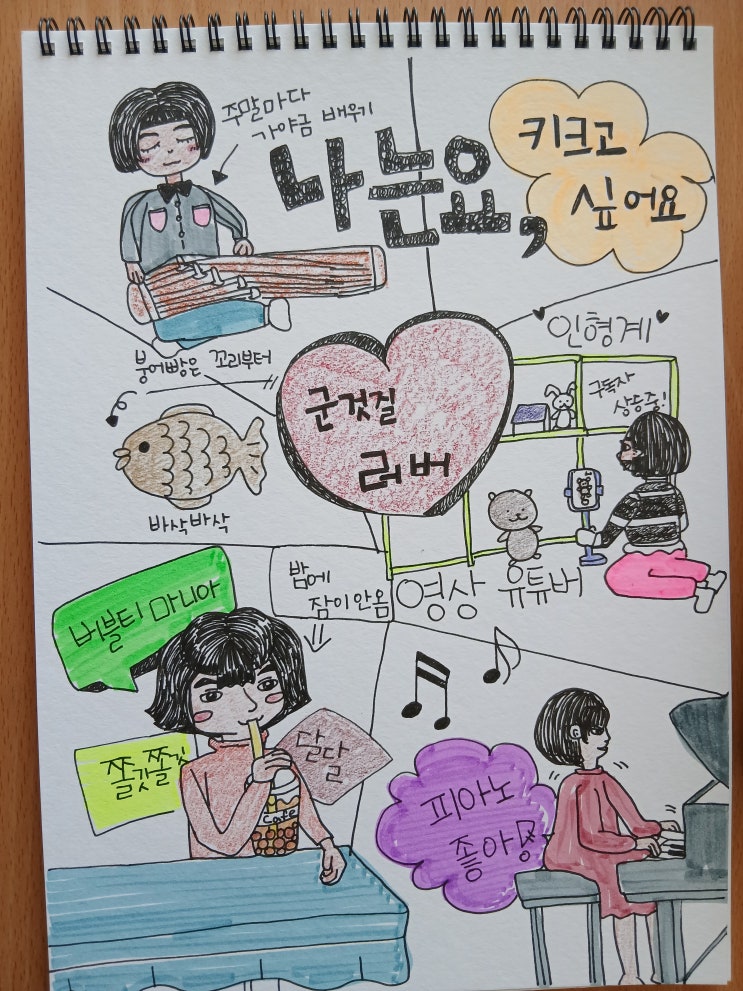 주말마다
가야금 배우기
나는요,
키크고
싶어요
붕어빵은 꼬리부터
바삭바삭
군것질
러버
인형계
구독자
상승중!
영상 유튜버
버블티 마니아
밤에
잠이안옴
쫄깃쫄깃
달달
Cafe
피아노
좋아!